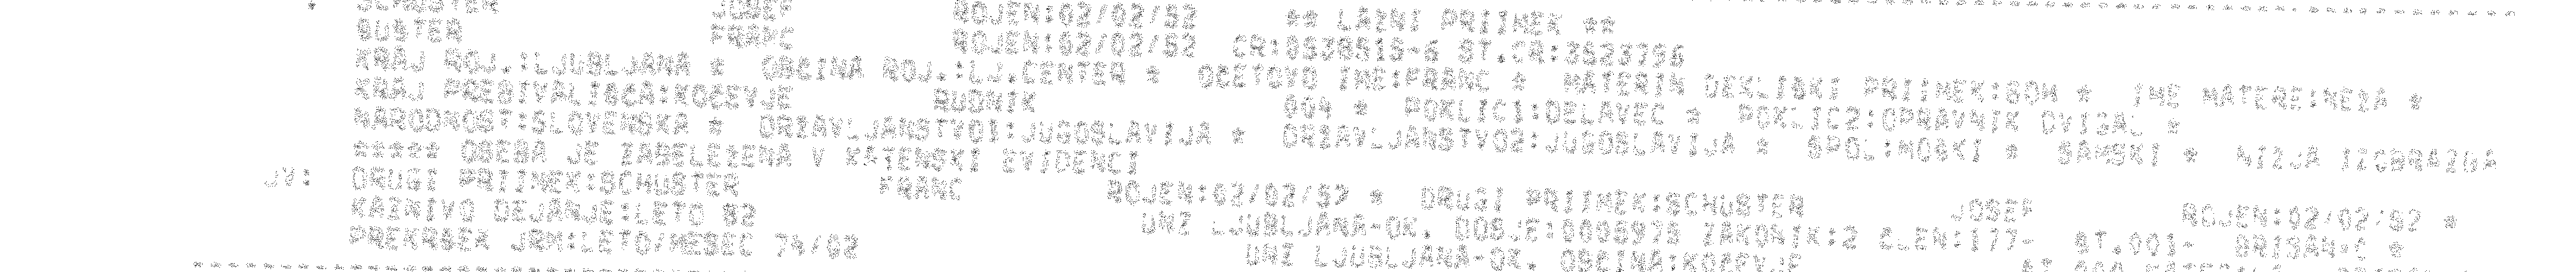 * SCHUSTER JOSEF ROJEN:02/02/52 ** LAZNI PRIIMEK **
SUSTER FRANC ROJEN:02/02/52 CR:0538515-6 ST.CR:3523756
KRAJ ROJ.:LJUBLJANA * OBCINA ROJ.:LJ.CENTER * OCETOVO IME:FRANC * MATERIN DEKLISKI PRIIMEK:BOH * IME MATERE:NEZA *
KRAJ PREBIVALISCA:KOCEVJE RUDNIK 004 * POKLIC1:DELAVEC * POKLIC2:UPRAVNIK DVIGAL *
NARODNOST:SLOVENSKA * DRZAVLJANSTVO1:JUGOSLAVIJA * DRZAVLJANSTVO2:JUGOSLAVIJA * SPOL:MOSKI * SAMSKI * NIZJA IZOBRAZBA
***** OSEBA JE ZABELEZENA V KAZENSKI EVIDENCI
JV: DRUGI PRIIMEK:SCHUSTER FRANC ROJEN:02/02/52 * DRUGI PRIIMEK:SCHUSTER JOSEF ROJEN:02/02/52 *
KAZNIVO DEJANJE:LETO 82 UNZ LJUBLJANA-OK. DOSJE:0005975 ZAKONIK:2 CLEN:177- ST.001- BRISAN:C *
PREKRSEK JRM:LETO/MESEC 74/02 UNZ LJUBLJANA-OK. OBCINA:KOCEVJE